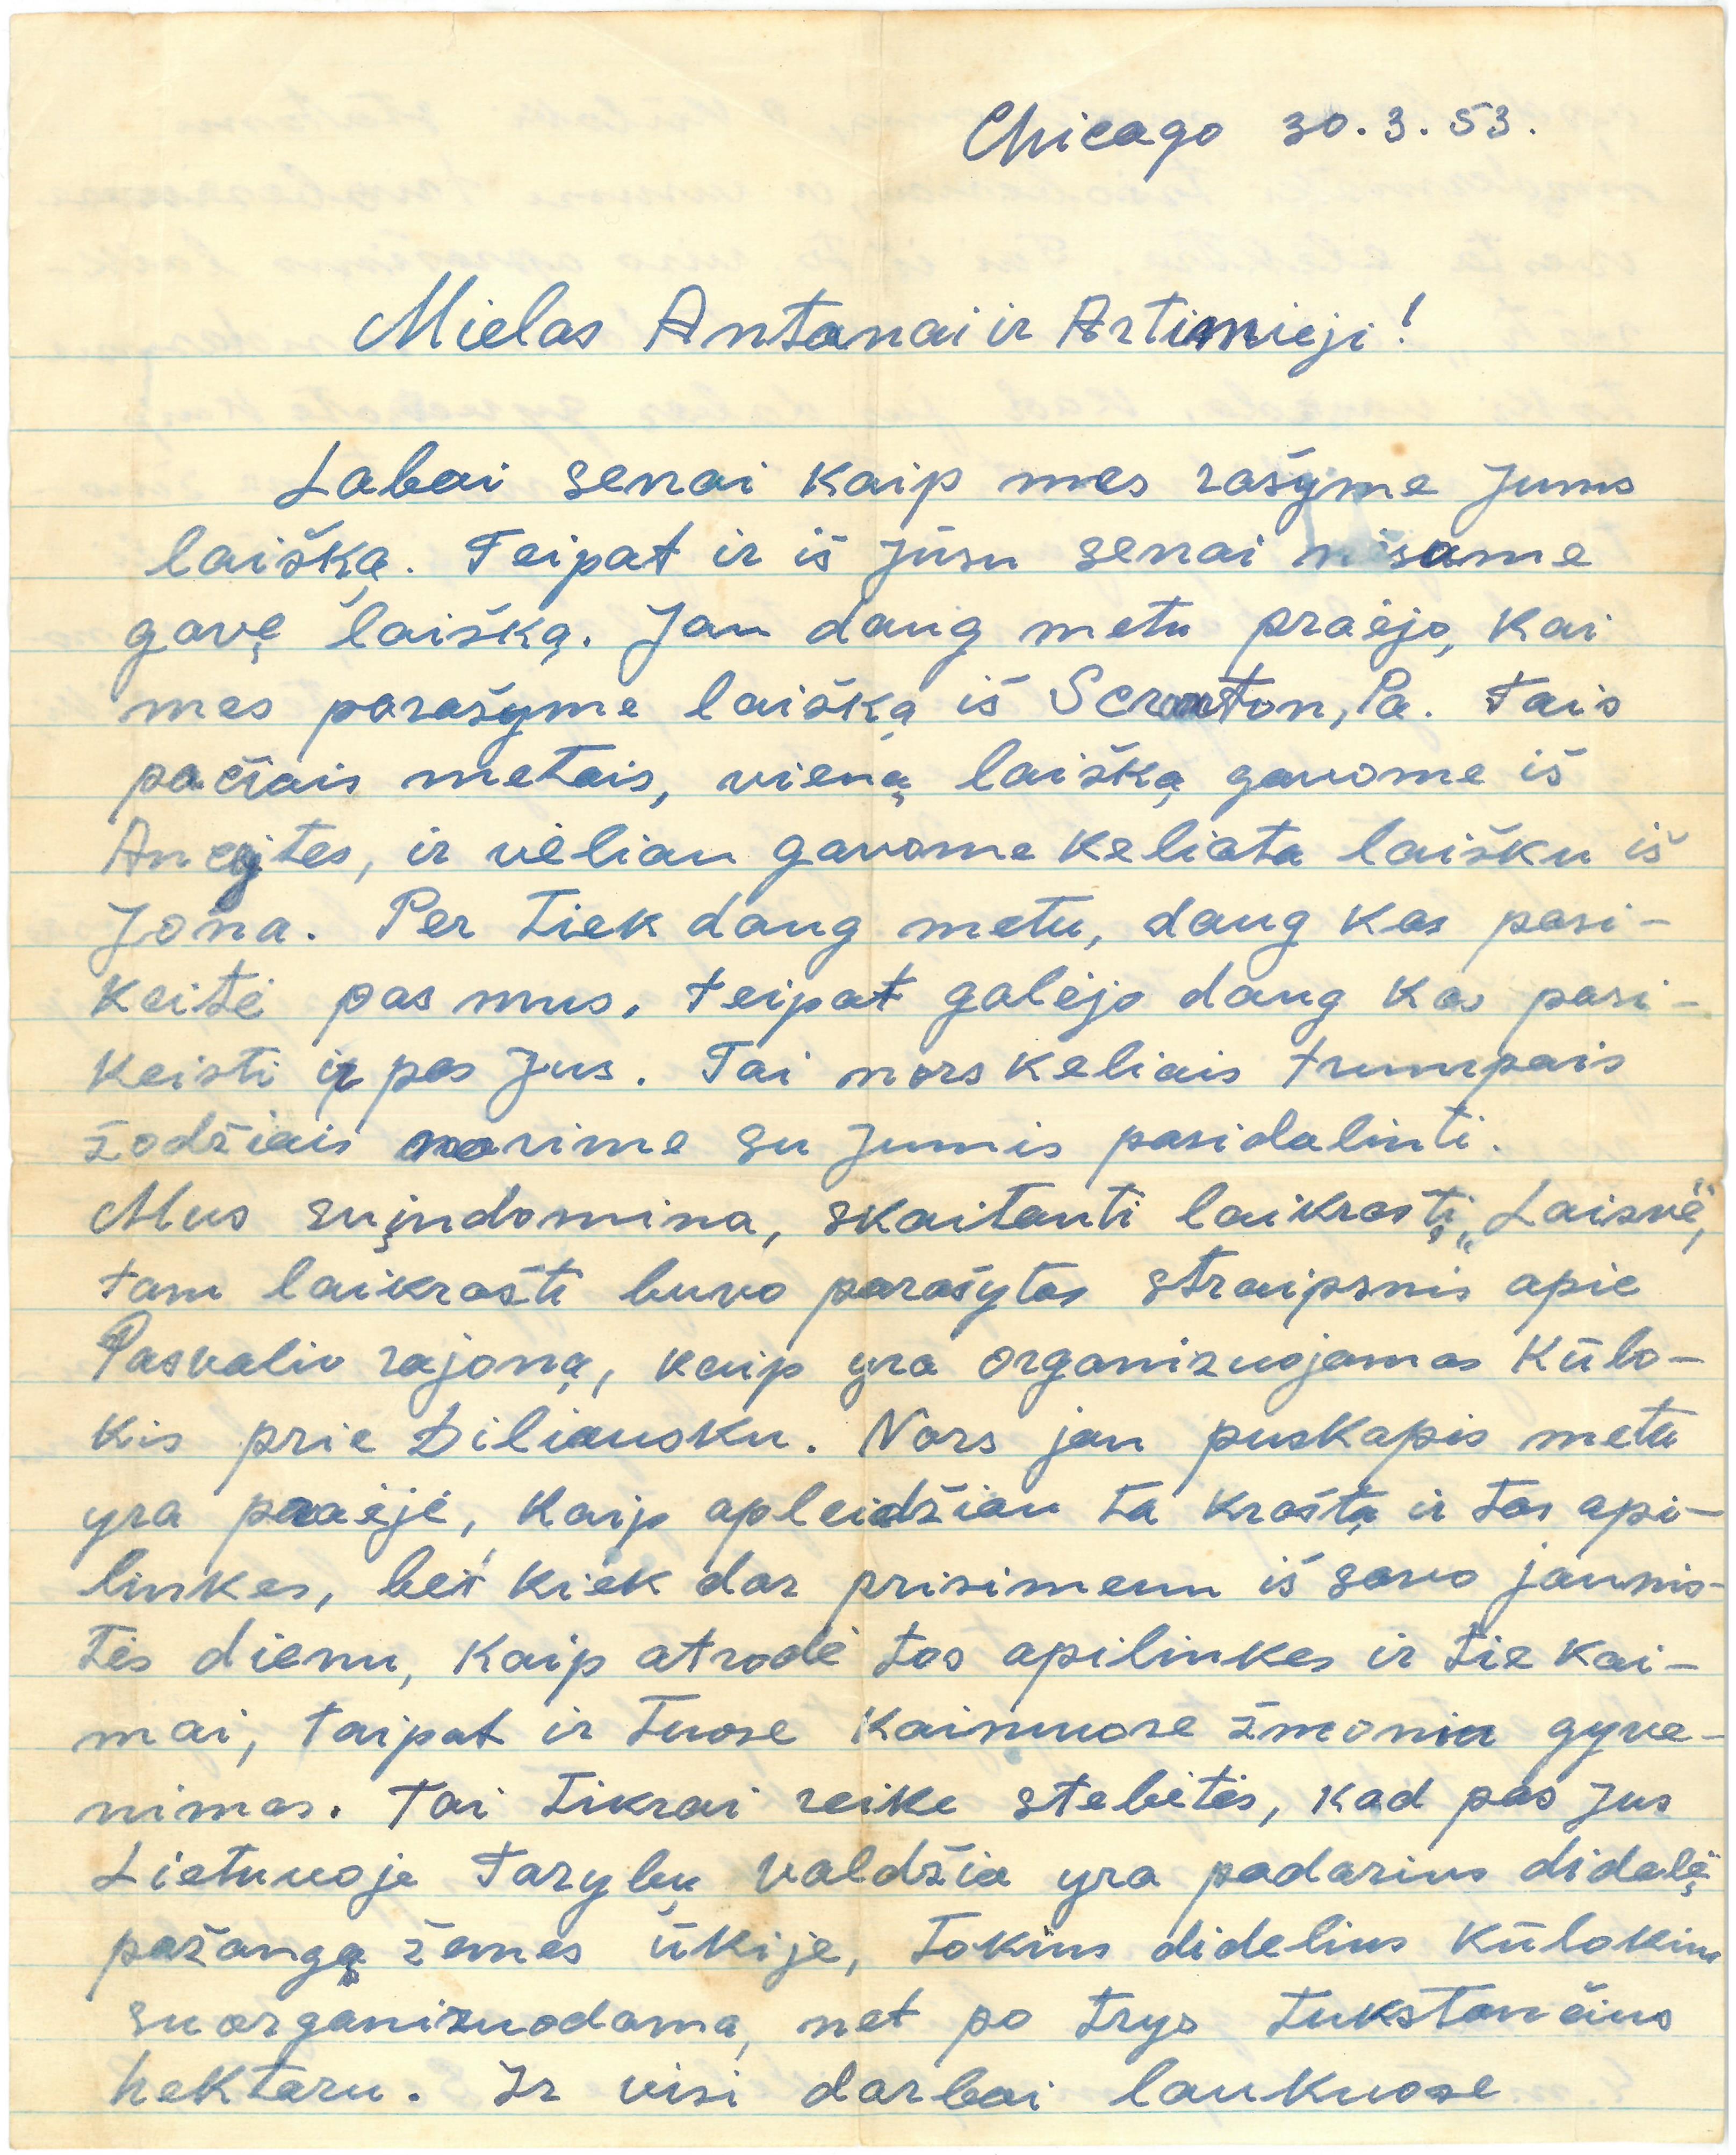 Chicago 30.3.53.
Mielas Antanai ir Artimieji!
Labai senai kaip mes rašyme Jums
laišką. Teipat ir iš Jūsu senai nesame
gavę laišką. Jau daug metu praėjo, kai
mes parašyme laišką iš Scranton, Pa. Tais
pačiais metais, vieną laišką gavome iš
ir vėliau gavome keliata laišku iš
Jona. Per tiek daug metu, daug kas pasi-
keitė pas mus, teipat galėjo daug kas pasi-
keisti ir pas Jus. Tai nors keliais trumpais
žodžiais norime su Jumis pasidalinti.
Mus suįndomina, skaitanti laikrastį „Laisvė",
tam laikrašti buvo parašytas straipsnis apie
Pasvalio rajoną, kaip yra organizuojamas Kūlo-
kis prie Diliausku. Nors jau puskapis metu
yra praėję, kaip apleidžiau ta kraštą ir tas api-
linkes, bet kiek dar prisimenu iš savo jaunis-
tės dienu, kaip atrodė tos apilinkes ir tie kai-
mai, taipat ir tuose kaimuose žmoniu gyve-
nimas. Tai tikrai reike stebėtės, kad pas Jus
Lietuvoje Tarybų valdžia yra padarius didelę
pažangą žemes ūkije, tokius didelius kūlokius
suorganizuodama, net po trys tukstančius
hektaru. Ir visi darbai laukuose